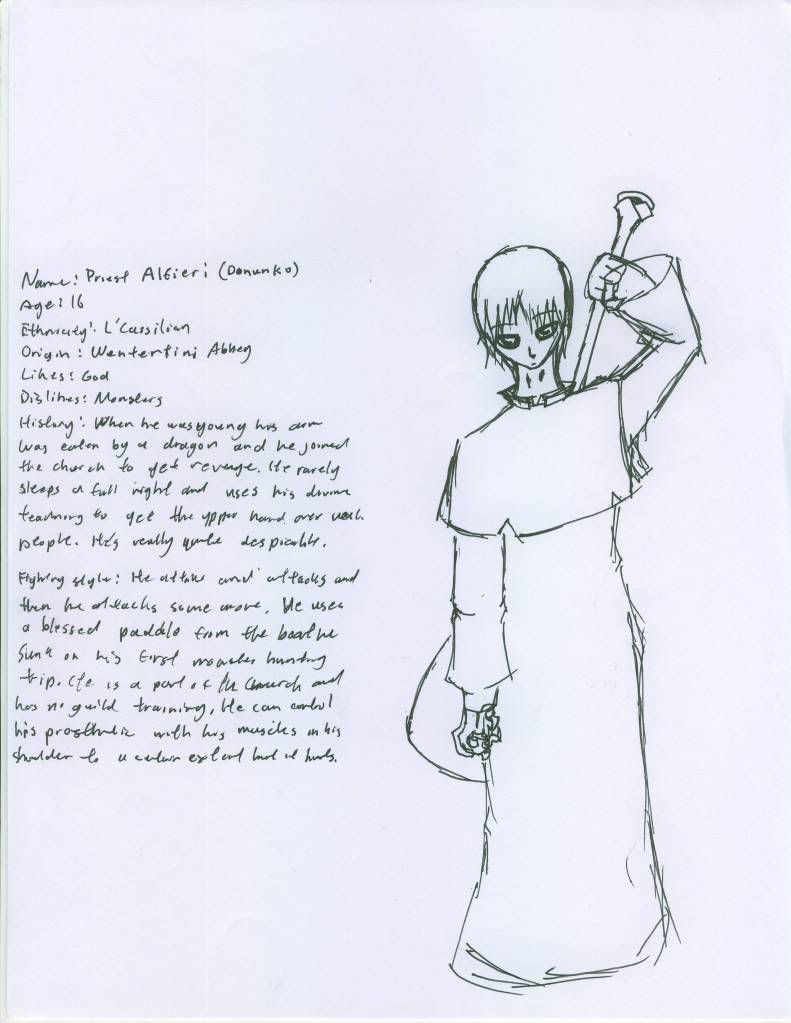 Name: Priest Alfieri (Donunko)
Age: 16
Ethnicity: L'Cassilian
Origin: Wentertini Abbey
Likes: God
Dislikes: Monsters
History: When he was young his arm
was eaten by a dragon and he joined
the church to get revenge. He rarely
sleeps a full night and uses his divine
teaching to get the upper hand over weak
people. He's really quite despicable.
Fighting style: He attacks and attacks and
then he attacks some more. He uses
a blessed paddle from the boat he
sunk on his first monster hunting
trip. He is a part of the church and
has no guild training. He can control
his prosthetic with his muscles in his
shoulder to a certain extent but it hurts.